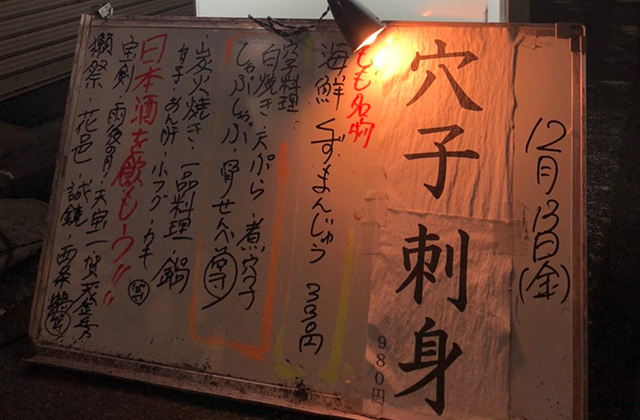 12月13日(金)
穴子刺身
980円
とも名物
海鮮くずまんじゅう 330円
穴子料理・
白焼き・天ぷら・煮穴子
しゃぶしゃぶ・骨せんべ 等
・炭火焼き・一品料理・鍋
カキ・あん肝・小フグ・カキ 等
日本酒を飲もーう!!
宝剣・雨後の月・天宝一・賀茂金秀
獺祭・花邑・誠鏡・西條鶴 等